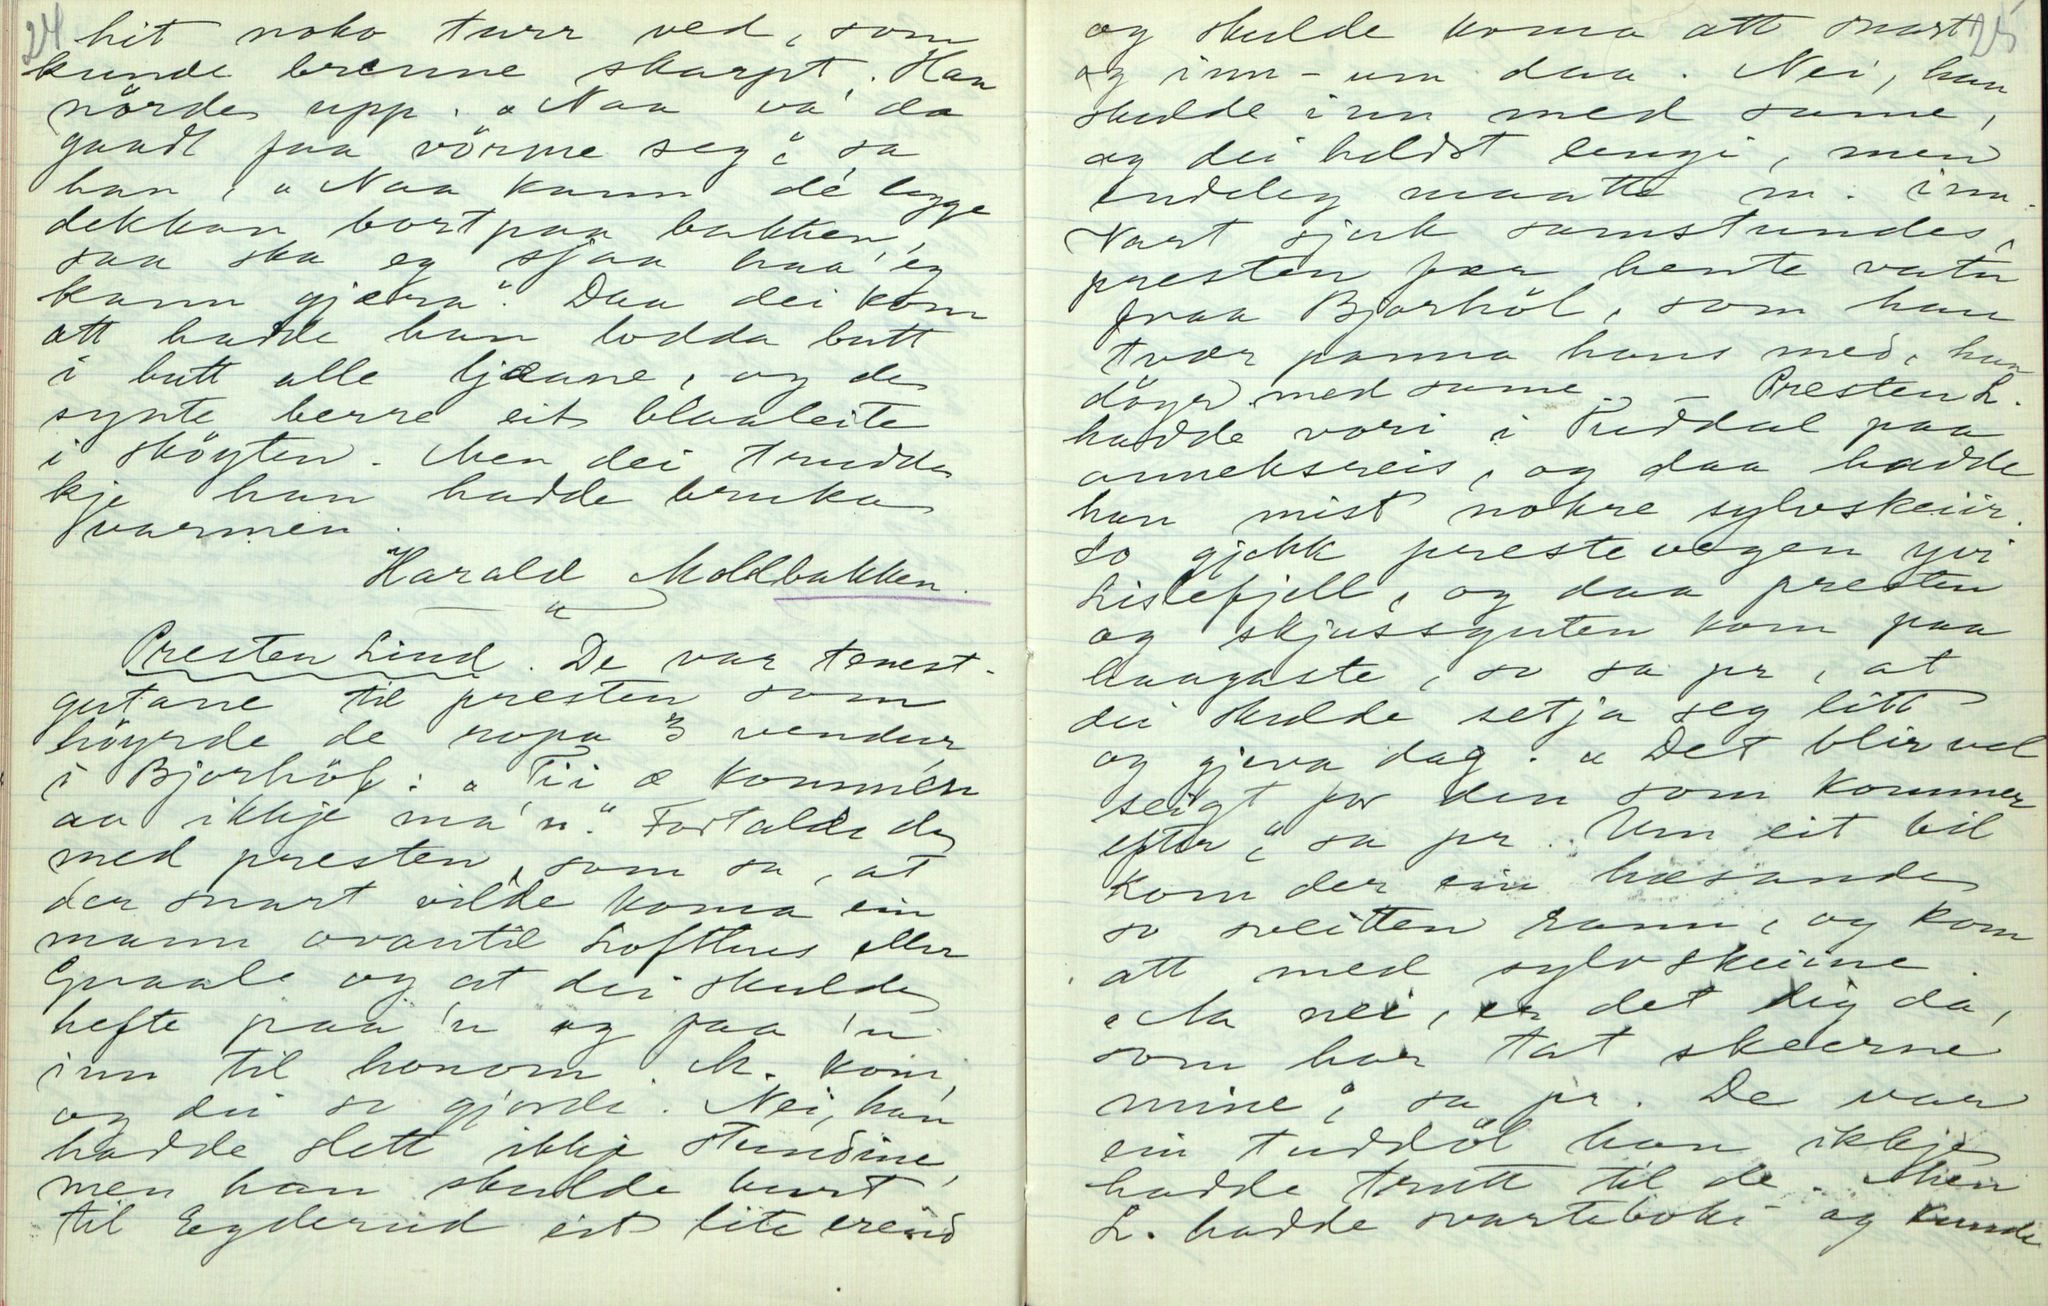 24
hit noko turr ved, som
kunde brenne skarpt. Han
nörde upp. "Naa va' da
gaadt faa vörme seg", sa
han, "Naa kann dé legge
dekkan bortpaa bakken,
saa ska eg sjaa haa' eg
kann gjæra". Daa dei kom
att hadde han lodda butt
i butt alle ljaane, og de
synte berre eit blaaleite
i sköyten. Men dei trudde
kje han hadde bruka
varmen.
Harald Moldbakken.
"
Presten Lind. De var tenest-
gutane til presten som
höyrde de ropa 3 vendur
i Bjorhöl: "Tii æ kommen
aa ikkje ma'n". Fortalde de
med presten, som sa, at
der snart vilde koma ein
mann ovantil Lofthus eller
Graale og at dei skulde
hefte paa 'n og faa 'n
inn til honom. M. kom,
og dei so gjorde. Nei, han
hadde slett ikkje stundine,
men han skulde burt
til Eggderud eit lite ereind
25
og skulde koma att snart
og inn-um daa. Nei, han
skulde inn med same,
og dei heldst lengi, men
endeleg maatte m. inn.
Vart sjuk samstundes,
presten fær hente vatn
fraa Bjorhöl, som han
tvær panna hans med, han
döyr med same. – Presten L.
hadde vori i Tuddal paa
anneksreis, og daa hadde
han mist nokre sylvskeiir.
So gjekk prestevegen yvi
Lislefjell, og daa presten
og skjussguten kom paa
haagaste, so sa pr, at
dei skulde setja seg litt
og gjeva dag. "Det blir vel
seigt for den som kommer
efter", sa pr. Um eit bil
kom der ein hæsande
so sveitten rann, og kom
att med sylvskeiine.
"Aa nei, er det dig da,
som har tat skeerne
mine", sa pr. De var
ein tuddöl han ikkje
hadde trutt til de. Men
L. hadde svarteboki og kunde